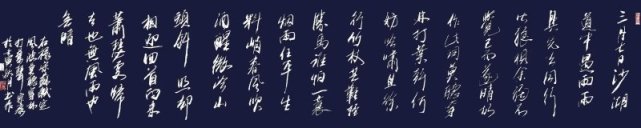 三月七日沙湖
道中遇雨雨
具先去同行
皆狼狽余獨不
覺已而遂晴故
作此詞莫聽穿
林打葉聲何
妨吟嘯且徐
行竹杖芒鞋輕
勝馬誰怕一蓑
煙雨任平生
料峭春風吹
酒醒微冷山
頭斜照却
相迎回首向來
蕭瑟處歸
去也無風雨也
無晴